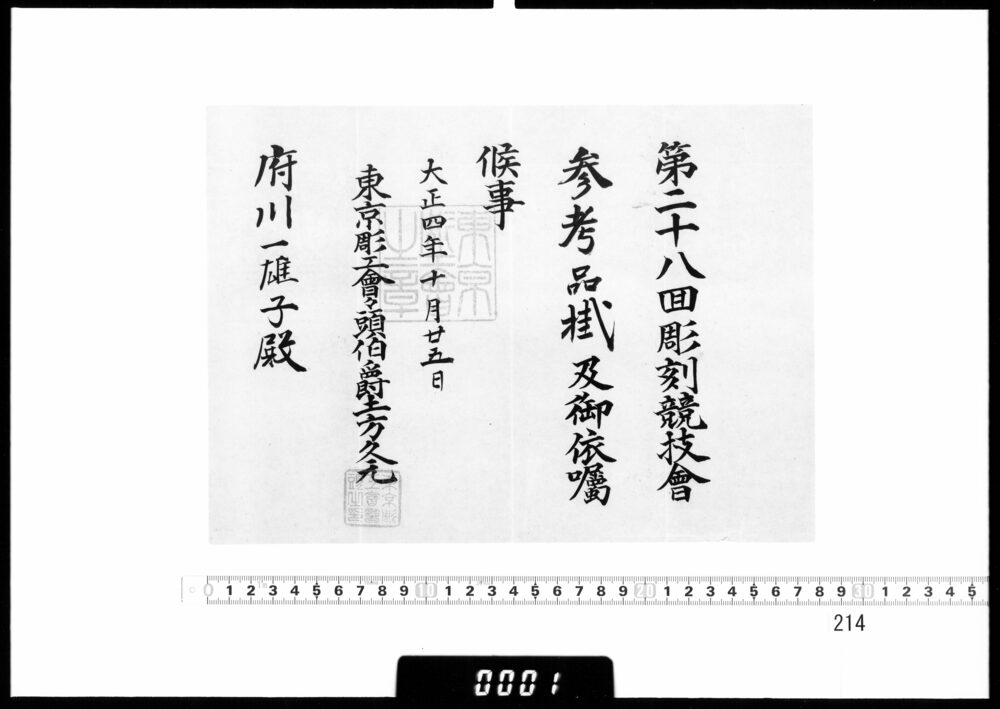 第二十八回彫刻競技會
参考品掛及御依嘱
候事
大正四年十月廿五日
東京彫工會々頭伯爵土方久元
府川一雄子殿
0 1 2 3 4 5 6 7 8 9 10 1 2 3 4 5 6 7 8 9 20 1 2 3 4 5 6 7 8 9 30 1 2 3 4 5
214
0001